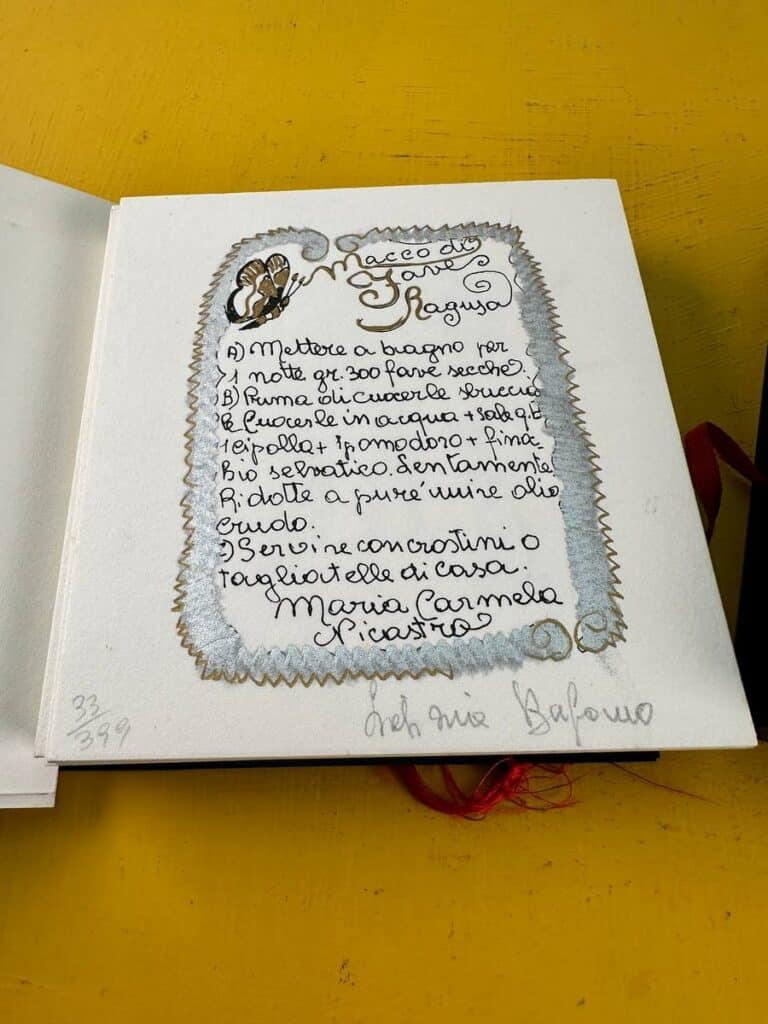 Macco di
Fave
Ragusa
A) Mettere a bagno per
1 notte gr. 300 fave secche.
B) Prima di cuocerle sbuccia
Cuocerle in acqua + sale q.b
1 cipolla + 1 pomodoro + finoc
chio selvatico. Lentamente
Ridotte a puré unire olio
crudo.
Servire con crostini o
tagliatelle di casa.
Maria Carmela
Nicastro
33/399